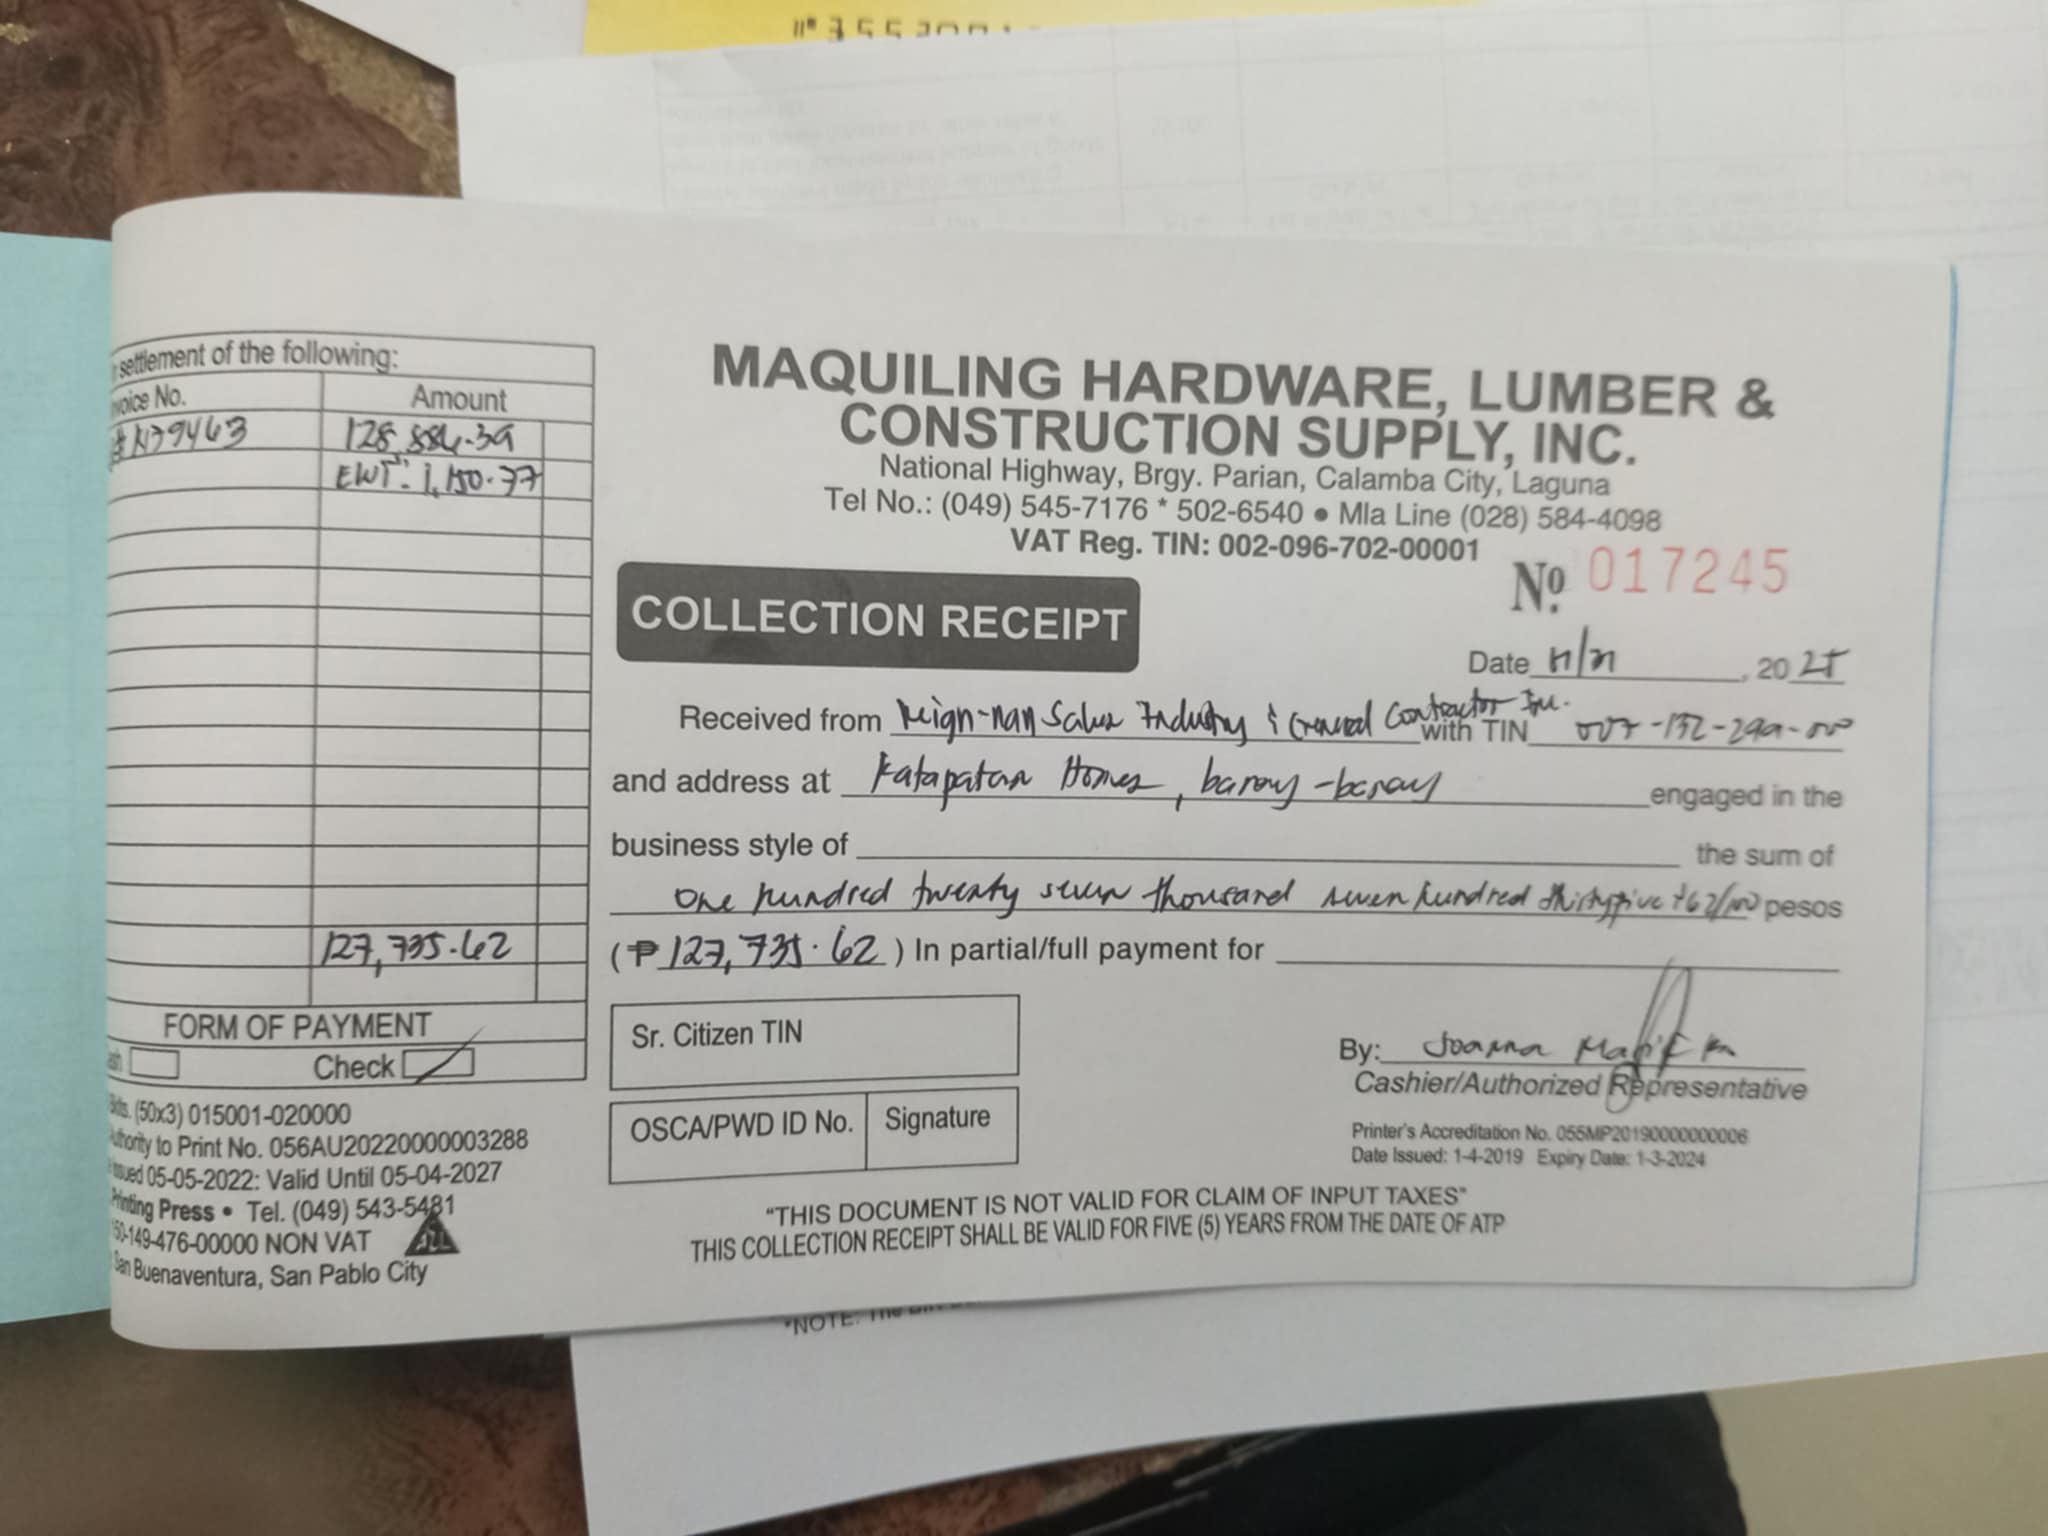 settlement of the following:
Invoice No. Amount
128,886.39
EWT: 1,150.77
127,735.62
FORM OF PAYMENT
Check
(50x3) 015001-020000
Authority to Print No. 056AU20220000003288
Issued 05-05-2022: Valid Until 05-04-2027
Printing Press • Tel. (049) 543-5481
50-149-476-00000 NON VAT
ALL
San Buenaventura, San Pablo City
MAQUILING HARDWARE, LUMBER &
CONSTRUCTION SUPPLY, INC.
National Highway, Brgy. Parian, Calamba City, Laguna
Tel No.: (049) 545-7176 * 502-6540 • Mla Line (028) 584-4098
VAT Reg. TIN: 002-096-702-00001
No. 017245
COLLECTION RECEIPT
Date , 2025
Received from Reign-nan Sales Industry & General Contractor Inc. with TIN 007-132-299-000
and address at Katapatan Homes, banay-banay engaged in the
business style of the sum of
one hundred twenty seven thousand seven hundred thirty five & 62/100 pesos
(₱ 127,735.62 ) In partial/full payment for
Sr. Citizen TIN
OSCA/PWD ID No. Signature
By: Joanna
Cashier/Authorized Representative
Printer's Accreditation No. 055MP20190000000006
Date Issued: 1-4-2019 Expiry Date: 1-3-2024
"THIS DOCUMENT IS NOT VALID FOR CLAIM OF INPUT TAXES"
THIS COLLECTION RECEIPT SHALL BE VALID FOR FIVE (5) YEARS FROM THE DATE OF ATP
*NOTE: The